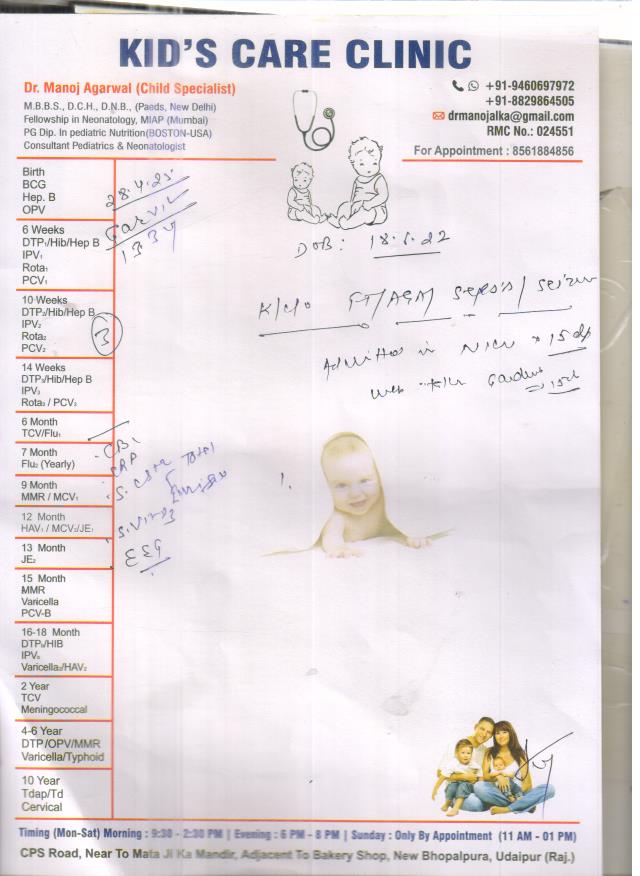 KID'S CARE CLINIC
Dr. Manoj Agarwal (Child Specialist)
M.B.B.S., D.C.H., D.N.B., (Paeds, New Delhi)
Fellowship in Neonatology, MIAP (Mumbai)
PG Dip. In pediatric Nutrition(BOSTON-USA)
Consultant Pediatrics & Neonatologist
+91-9460697972
+91-8829864505
drmanojalka@gmail.com
RMC No.: 024551
For Appointment : 8561884856
Birth
BCG
Hep. B
OPV
28.4.25
6 Weeks
DTP₁/Hib/Hep B
IPV₁
Rota₁
PCV₁
DOB: 18.
22
FT/AGA/ sepsis/
Admitted in NICU x 15
10 Weeks
DTP₂/Hib/Hep B
IPV₂
Rota₂
PCV₂
3
14 Week
DTP₃/Hib/Hep B
IPV₃
Rota₃ / PCV₃
6 Month
TCV/Flu₁
7 Month
Flu₂ (Yearly)
9 Month
MMR / MCV₁
12 Month
HAV₁ / MCV₂/JE₁
13 Month
JE₂
CRP
Total
S. Vit D3
EEG
15 Month
MMR
Varicella
PCV-B
16-18 Month
DTP₅/HIB
IPV₅
Varicella₂/HAV₂
2 Year
TCV
Meningococcal
4-6 Year
DTP/OPV/MMR
Varicella/Typhoid
10 Year
Tdap/Td
Cervical
Timing (Mon-Sat) Morning : 9:30 - 2:30 PM | Evening : 6 PM - 8 PM | Sunday : Only By Appointment (11 AM - 01 PM)
CPS Road, Near To Mata Ji Ka Mandir, Adjacent To Bakery Shop, New Bhopalpura, Udaipur (Raj.)